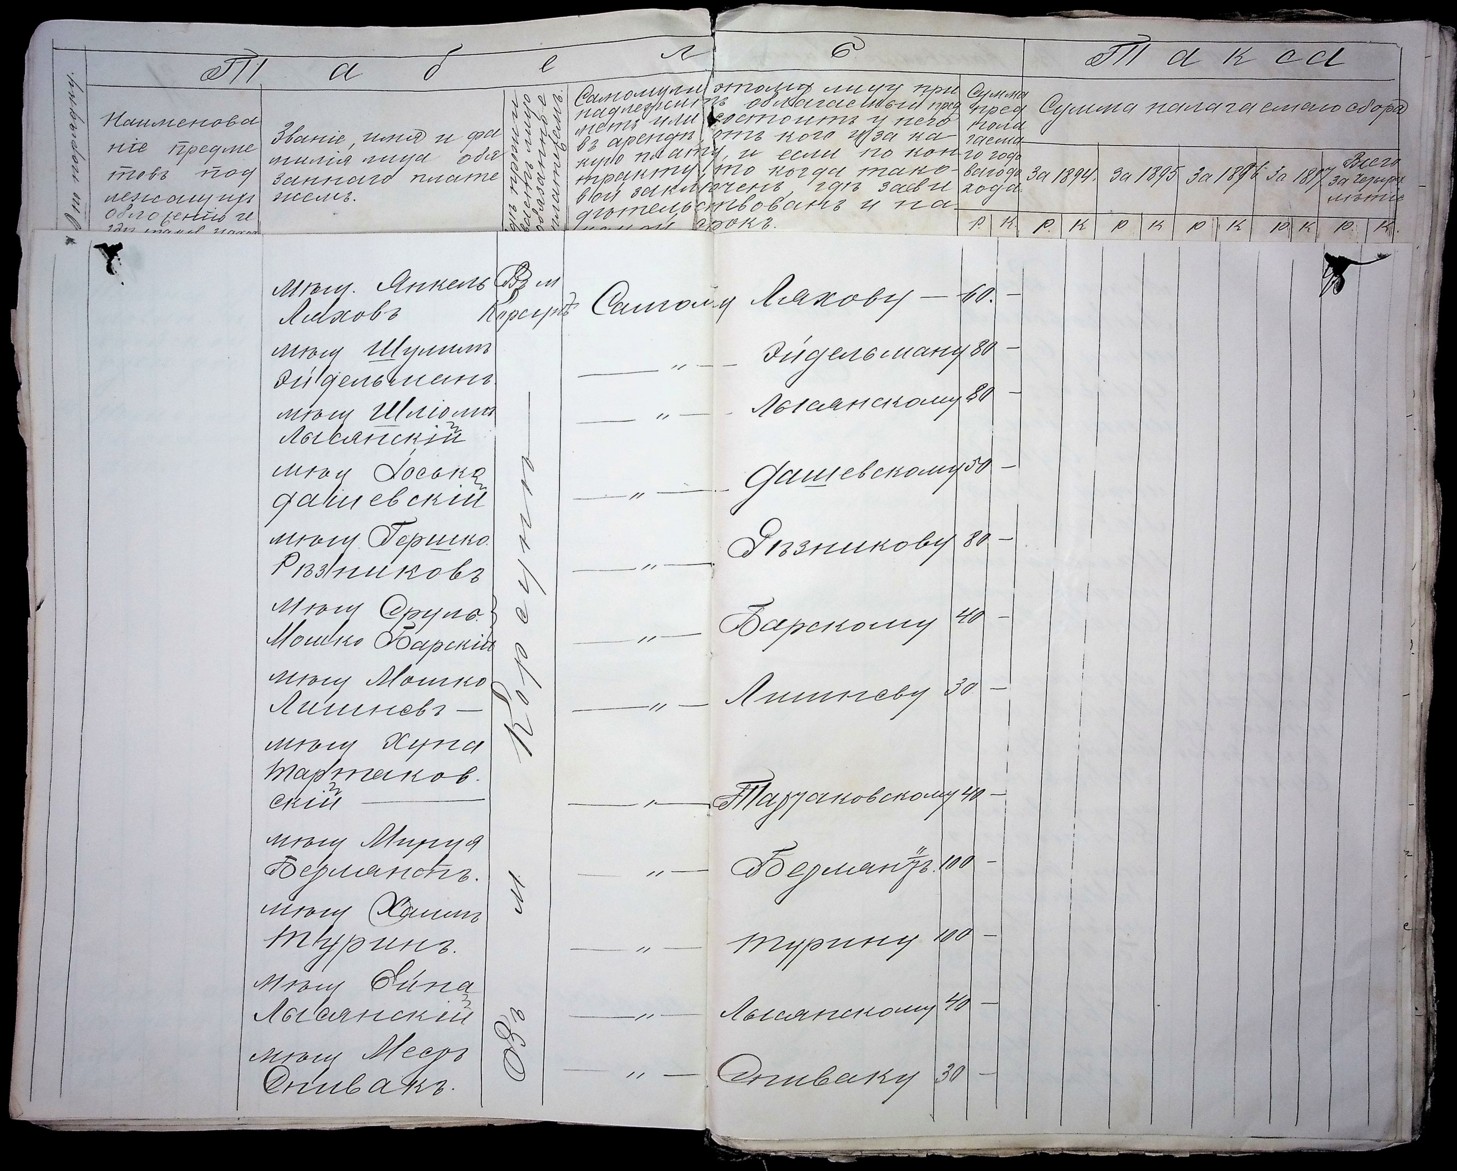 Табель
Такса
№ по порядку
Наименова
ніе предме
товъ под
лежащихъ
обложенію и
Званіе, имя и фа
милія лица обя
заннаго плате
жемъ.
Самому ли этому лицу при
надлежитъ облагаемый пред
метъ или состоитъ у него
въ арендѣ, отъ кого и за ка-
кую плату, и если по кон
тракту, то когда тако-
вой заключенъ гдѣ засви
дѣтельствованъ и на
какой срокъ.
Сумма
пред
пола
гаема
го годо
ваго до
хода
Сумма налагаемаго сбора
За 1894. За 1895 За 1896 За 189
Всего
за четыре
лѣтіе
Р. К. Р. К. Р. К. Р. К. Р. К. Р. К.
мѣщ. Янкель Въ м
Ляховъ Корсунѣ Самому Ляхову — 60. —
мѣщ Шулимъ
Эйдельманъ — „ — Эйдельману 80 —
мѣщ Шліома
Лысянскій — „ — Лысянскому 80 —
мѣщ Іоська
Дашевскій — „ — Дашевскому 50 —
мѣщ Гершко
Рѣзниковъ — „ — Рѣзникову 80 —
мѣщ Сруль-
Мошко Барскій — „ — Барскому 40 —
мѣщ Мошко
Лишневъ — — „ — Лишневу 30 —
мѣщ Хуна
Тартаков-
скій — — „ — Тартаковскому 40 —
мѣщ
Бермантъ. — „ — Бермантъ 100 —
мѣщ Хаимъ
Туринъ. — „ — Турину 100 —
мѣщ
Лысянскій — „ — Лысянскому 40 —
мѣщ Мееръ
Спивакъ. — „ — Спиваку 30 —
Въ м. Корсунѣ